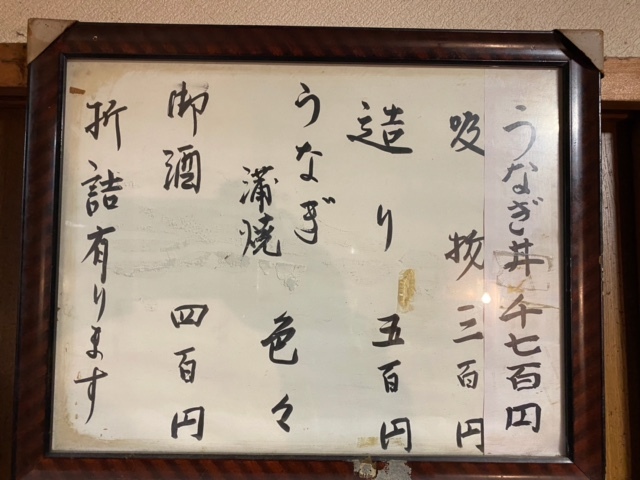 うなぎ丼 千七百円
吸物 三百円
造り 五百円
うなぎ 色々
蒲焼
御酒 四百円
折詰有ります